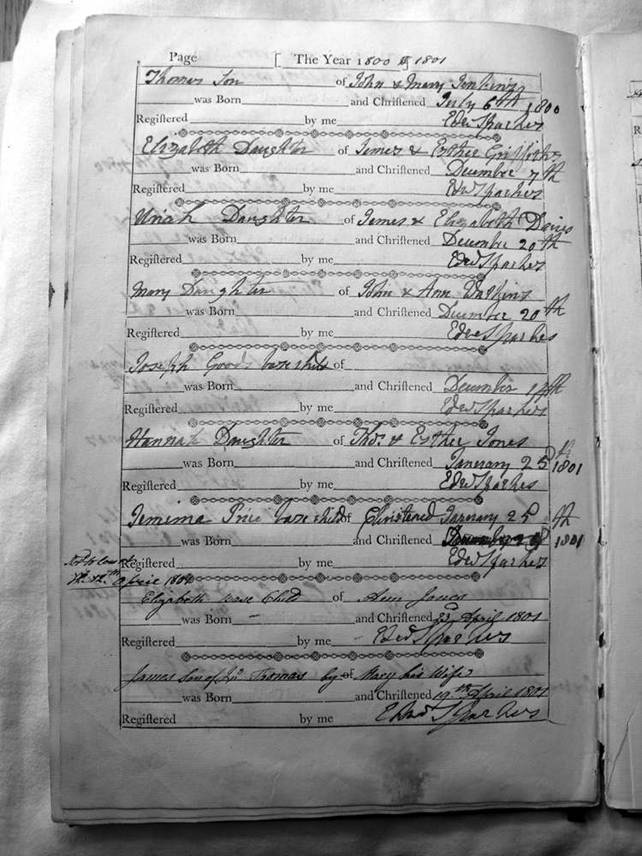 Page [ The Year 1800 & 1801
Thomas Son of John & Mary Jenkins
was Born and Chriſtened July 6th 1800
Regiſtered by me Edwd Sparkes
Elizabeth Daughter of James & Esther Griffiths
was Born and Chriſtened December 7th
Regiſtered by me Edwd Sparkes
Uriah Daughter of James & Elizabeth Davies
was Born and Chriſtened December 20th
Regiſtered by me Edwd Sparkes
Mary Daughter of John & Ann
was Born and Chriſtened December 20th
Regiſtered by me Edwd Sparkes
Joseph Good base child of
was Born and Chriſtened December
Regiſtered by me Edwd Sparkes
Hannah Daughter of Thos. & Esther Jones
was Born and Chriſtened January 25th 1801
Regiſtered by me Edwd Sparkes
Jemima Price base child of Christened January 25th
was Born and Chriſtened 1801
Regiſtered by me Edwd Sparkes
April 1801
Elizabeth base Child of Ann Jones
was Born and Chriſtened 23d April 1801
Regiſtered by me Edwd Sparkes
James Son of Jno Thomas by of Mary his Wife
was Born and Chriſtened 19th April 1801
Regiſtered by me Edwd Sparkes